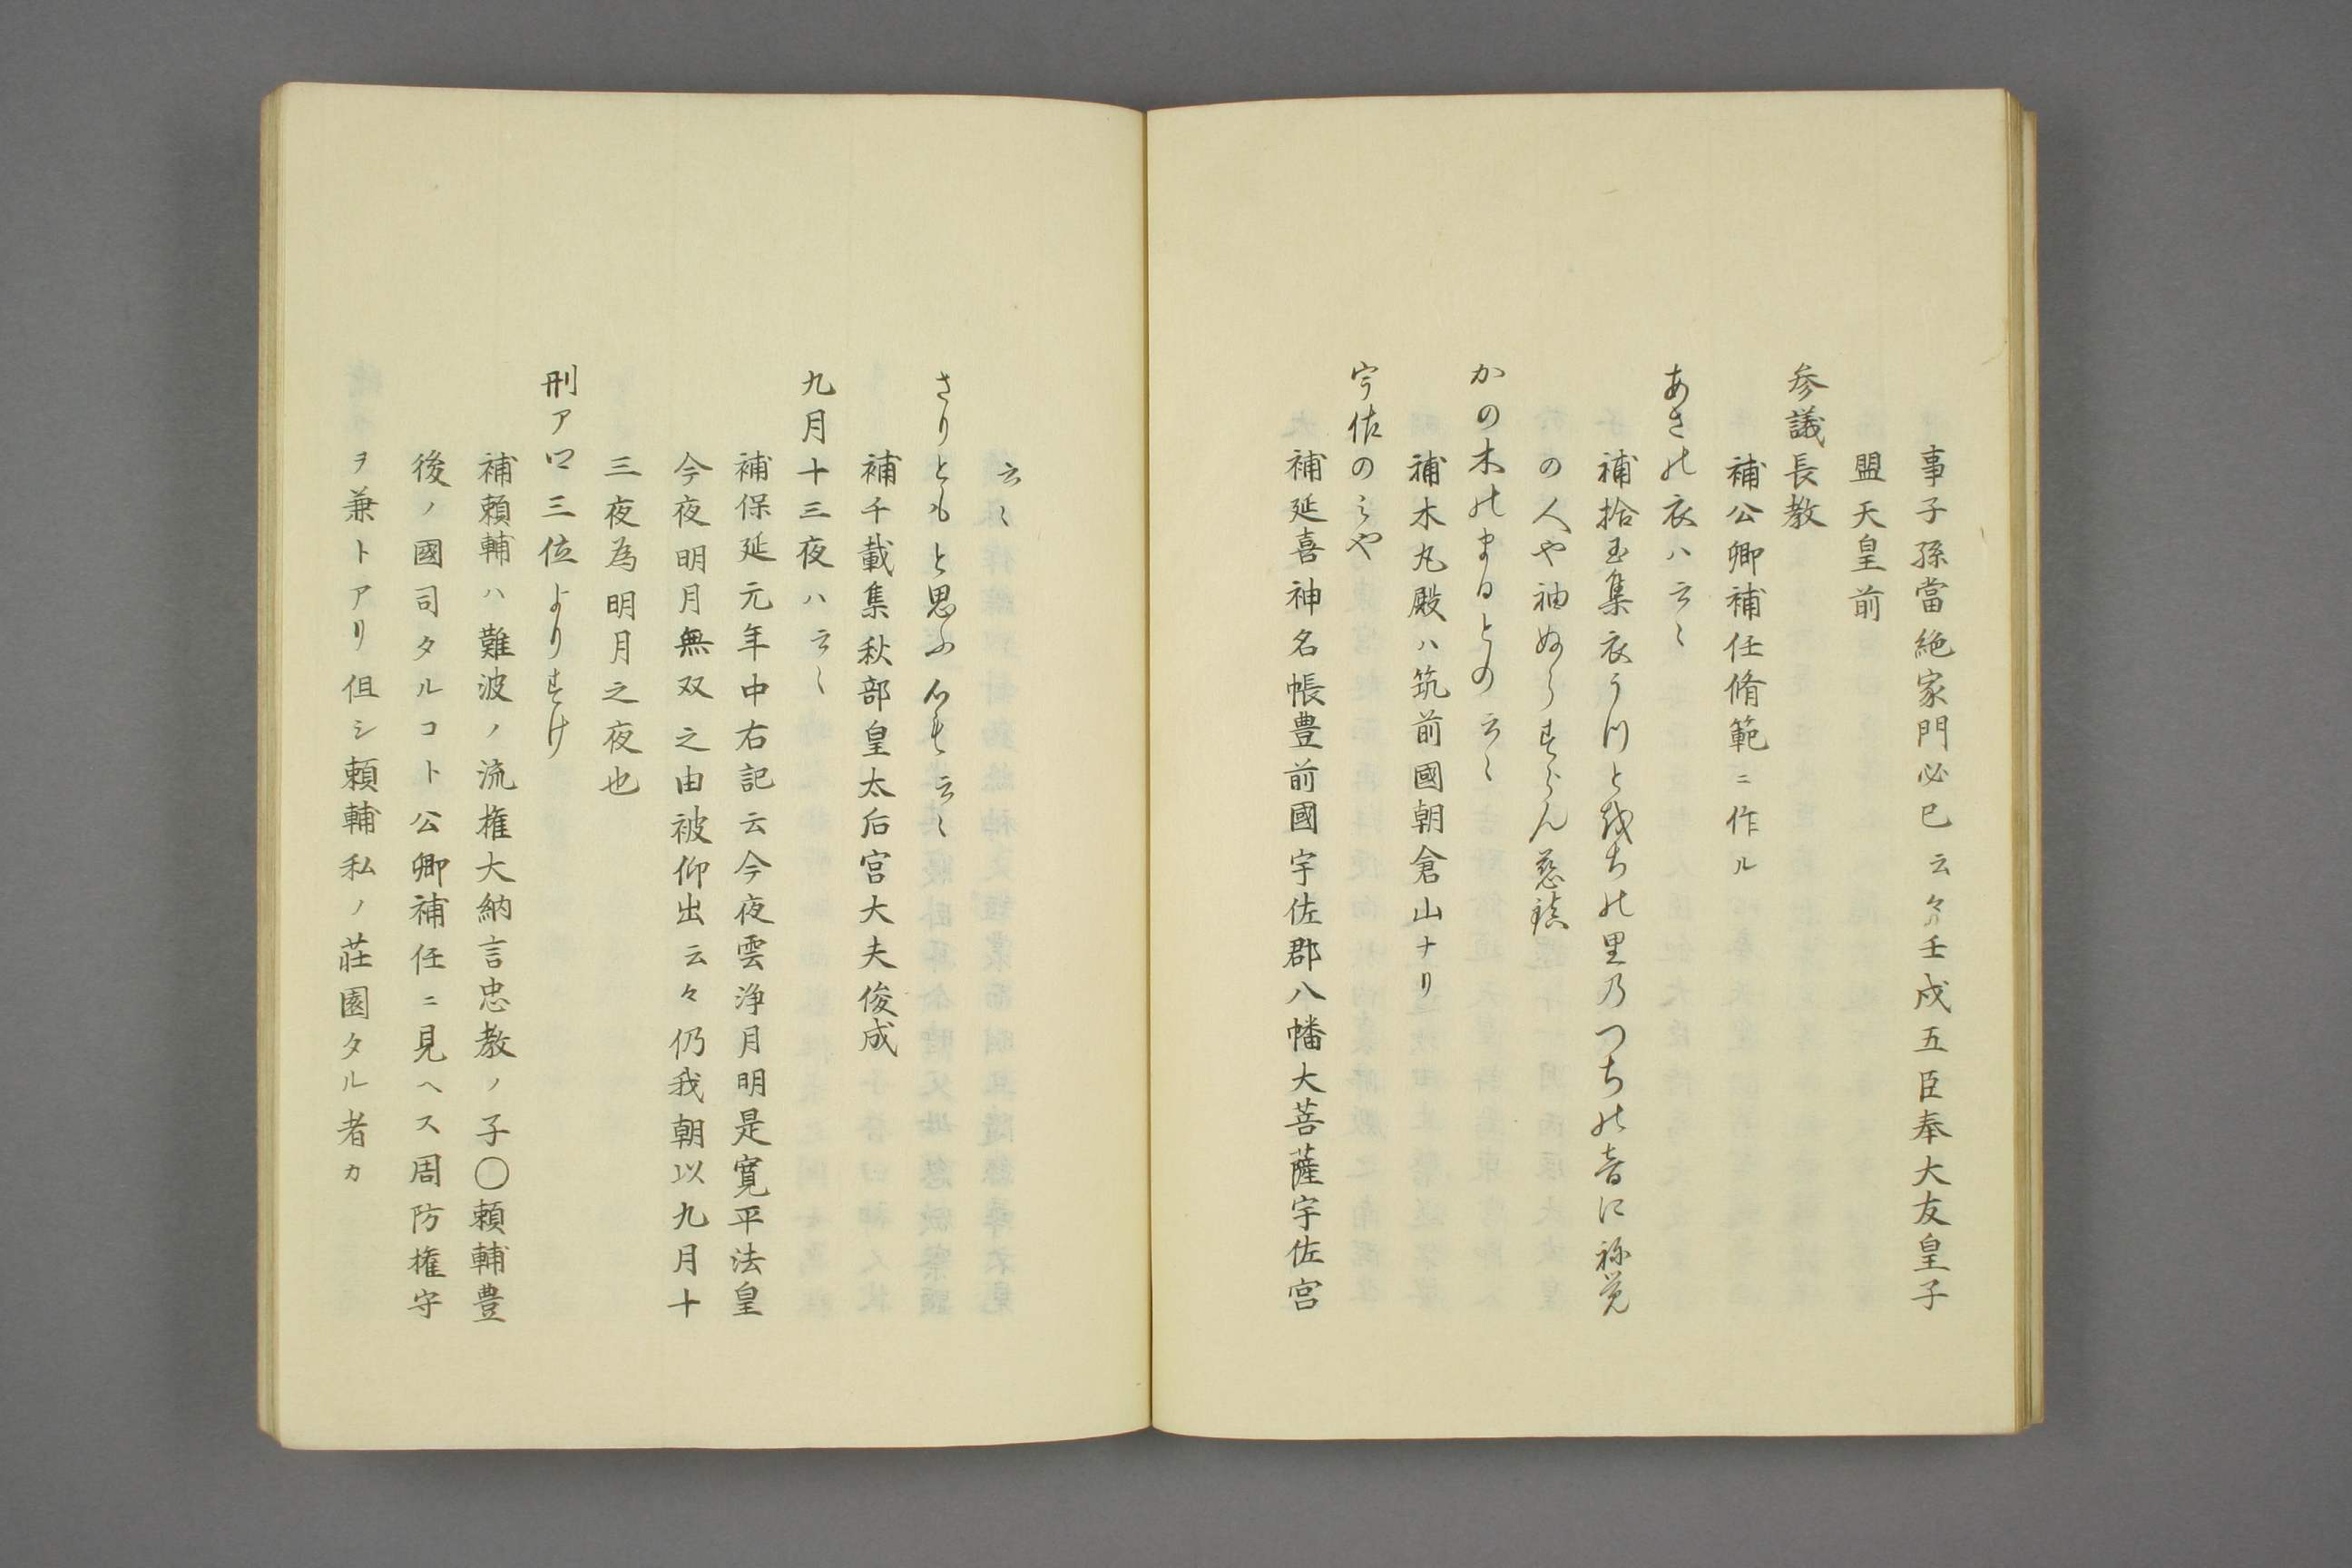 事子孫當絶家門必巳云々壬戌五臣奉大友皇子
盟天皇前
参議長教
補公卿補任脩範ニ作ル
あさの衣ハ云〻
補拾玉集衣うつと越ちの里乃つちの音に祢覚
の人や袖ぬらすらん慈鎮
かの木のまろとの云〻
補木丸殿ハ筑前國朝倉山ナリ
宇佐のミや
補延喜神名帳豊前國宇佐郡八幡大菩薩宇佐宮
云〻
さりともと思ふ心も云〻
補千載集秋部皇太后宮大夫俊成
九月十三夜ハ云〻
補保延元年中右記云今夜雲浄月明是寛平法皇
今夜明月無双之由被仰出云々仍我朝以九月十
三夜為明月之夜也
刑ア口三位よりすけ
補頼輔ハ難波ノ流権大納言忠教ノ子〇頼輔豊
後ノ國司タルコト公卿補任ニ見ヘス周防権守
ヲ兼トアリ但シ頼輔私ノ莊園タル者カ